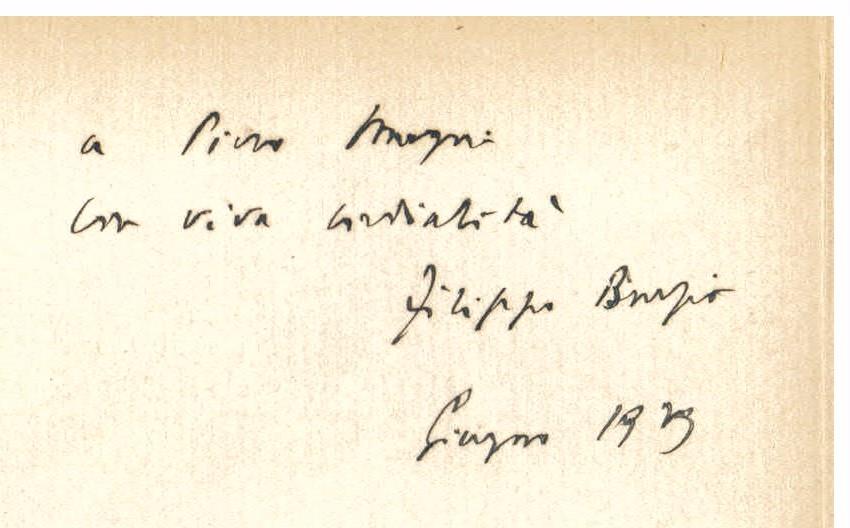 a Piero Magni
con viva cordialità
Filippo Burzio
Giugno 1929